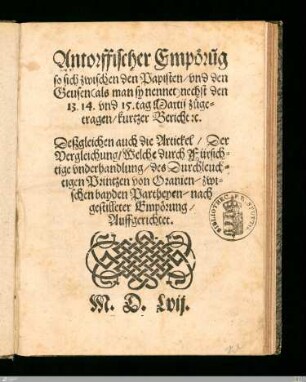 Antorffischer Empörũg
so sich zwischen den Papisten / vnd den
Geusen (als man sy nennet) nechst den
13. 14. vnd 15. tag Martij zůge-
tragen / kurtzer Bericht ꝛc.
Deßgleichen auch die Artickel / Der
Vergleichung / Welche durch Fürsich-
tige vnderhandlung / des Durchleuch-
tigen Printzen von Oranien / zwi-
schen bayden Partheyen / nach
gestilleter Empörung /
Auffgerichtet.
M. D. Lvij.